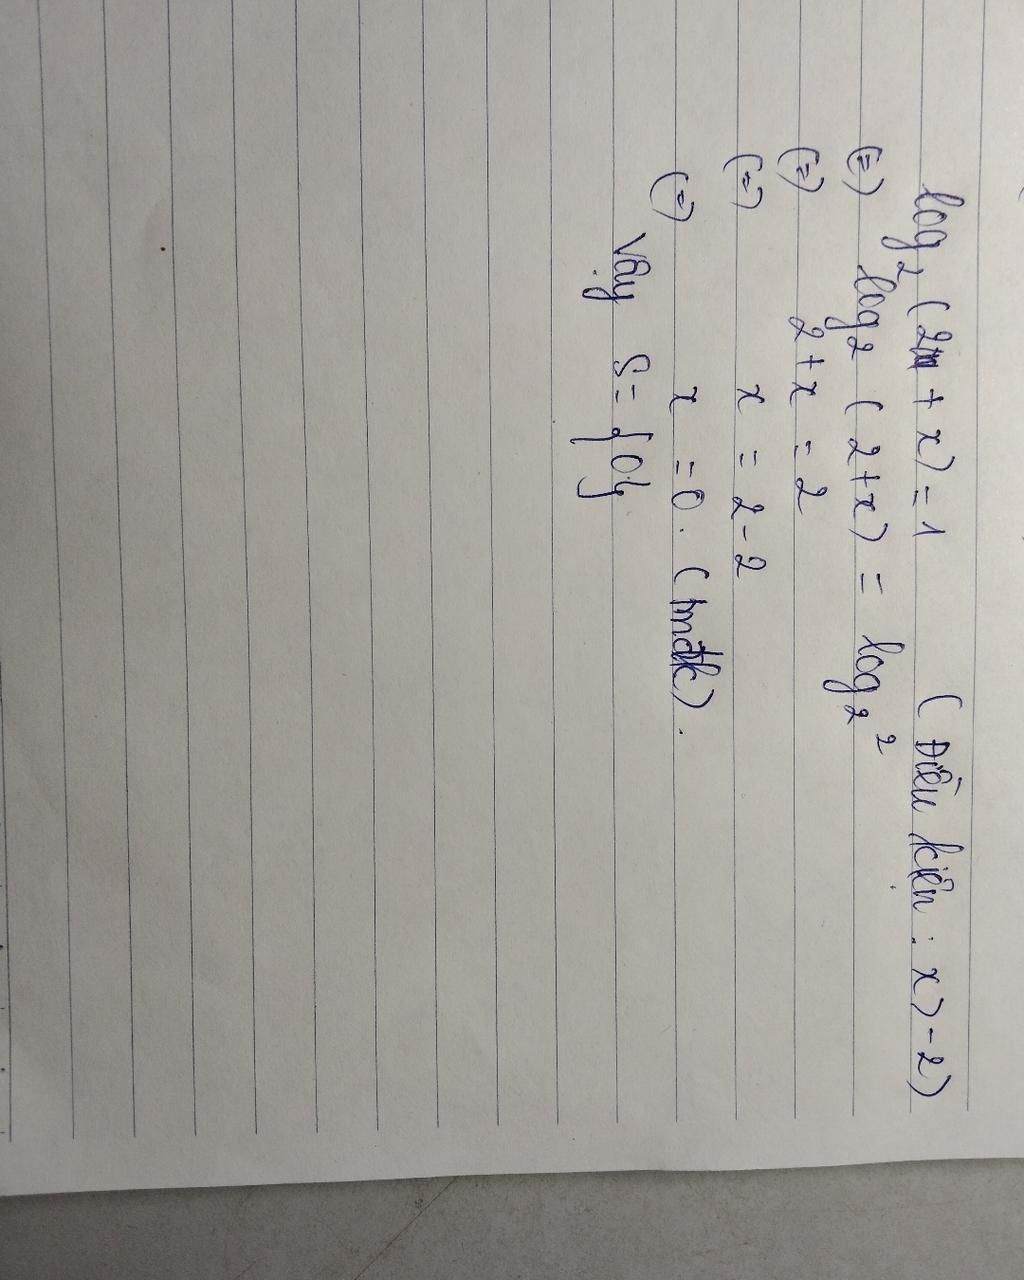 log₂ (2 + x) = 1 (Điều kiện : x > -2)
(=) log₂ (2+x) = log₂ ²
(=) 2+x = 2
(=) x = 2-2
(=) x = 0. (tmđk).
Vậy S = {0}.